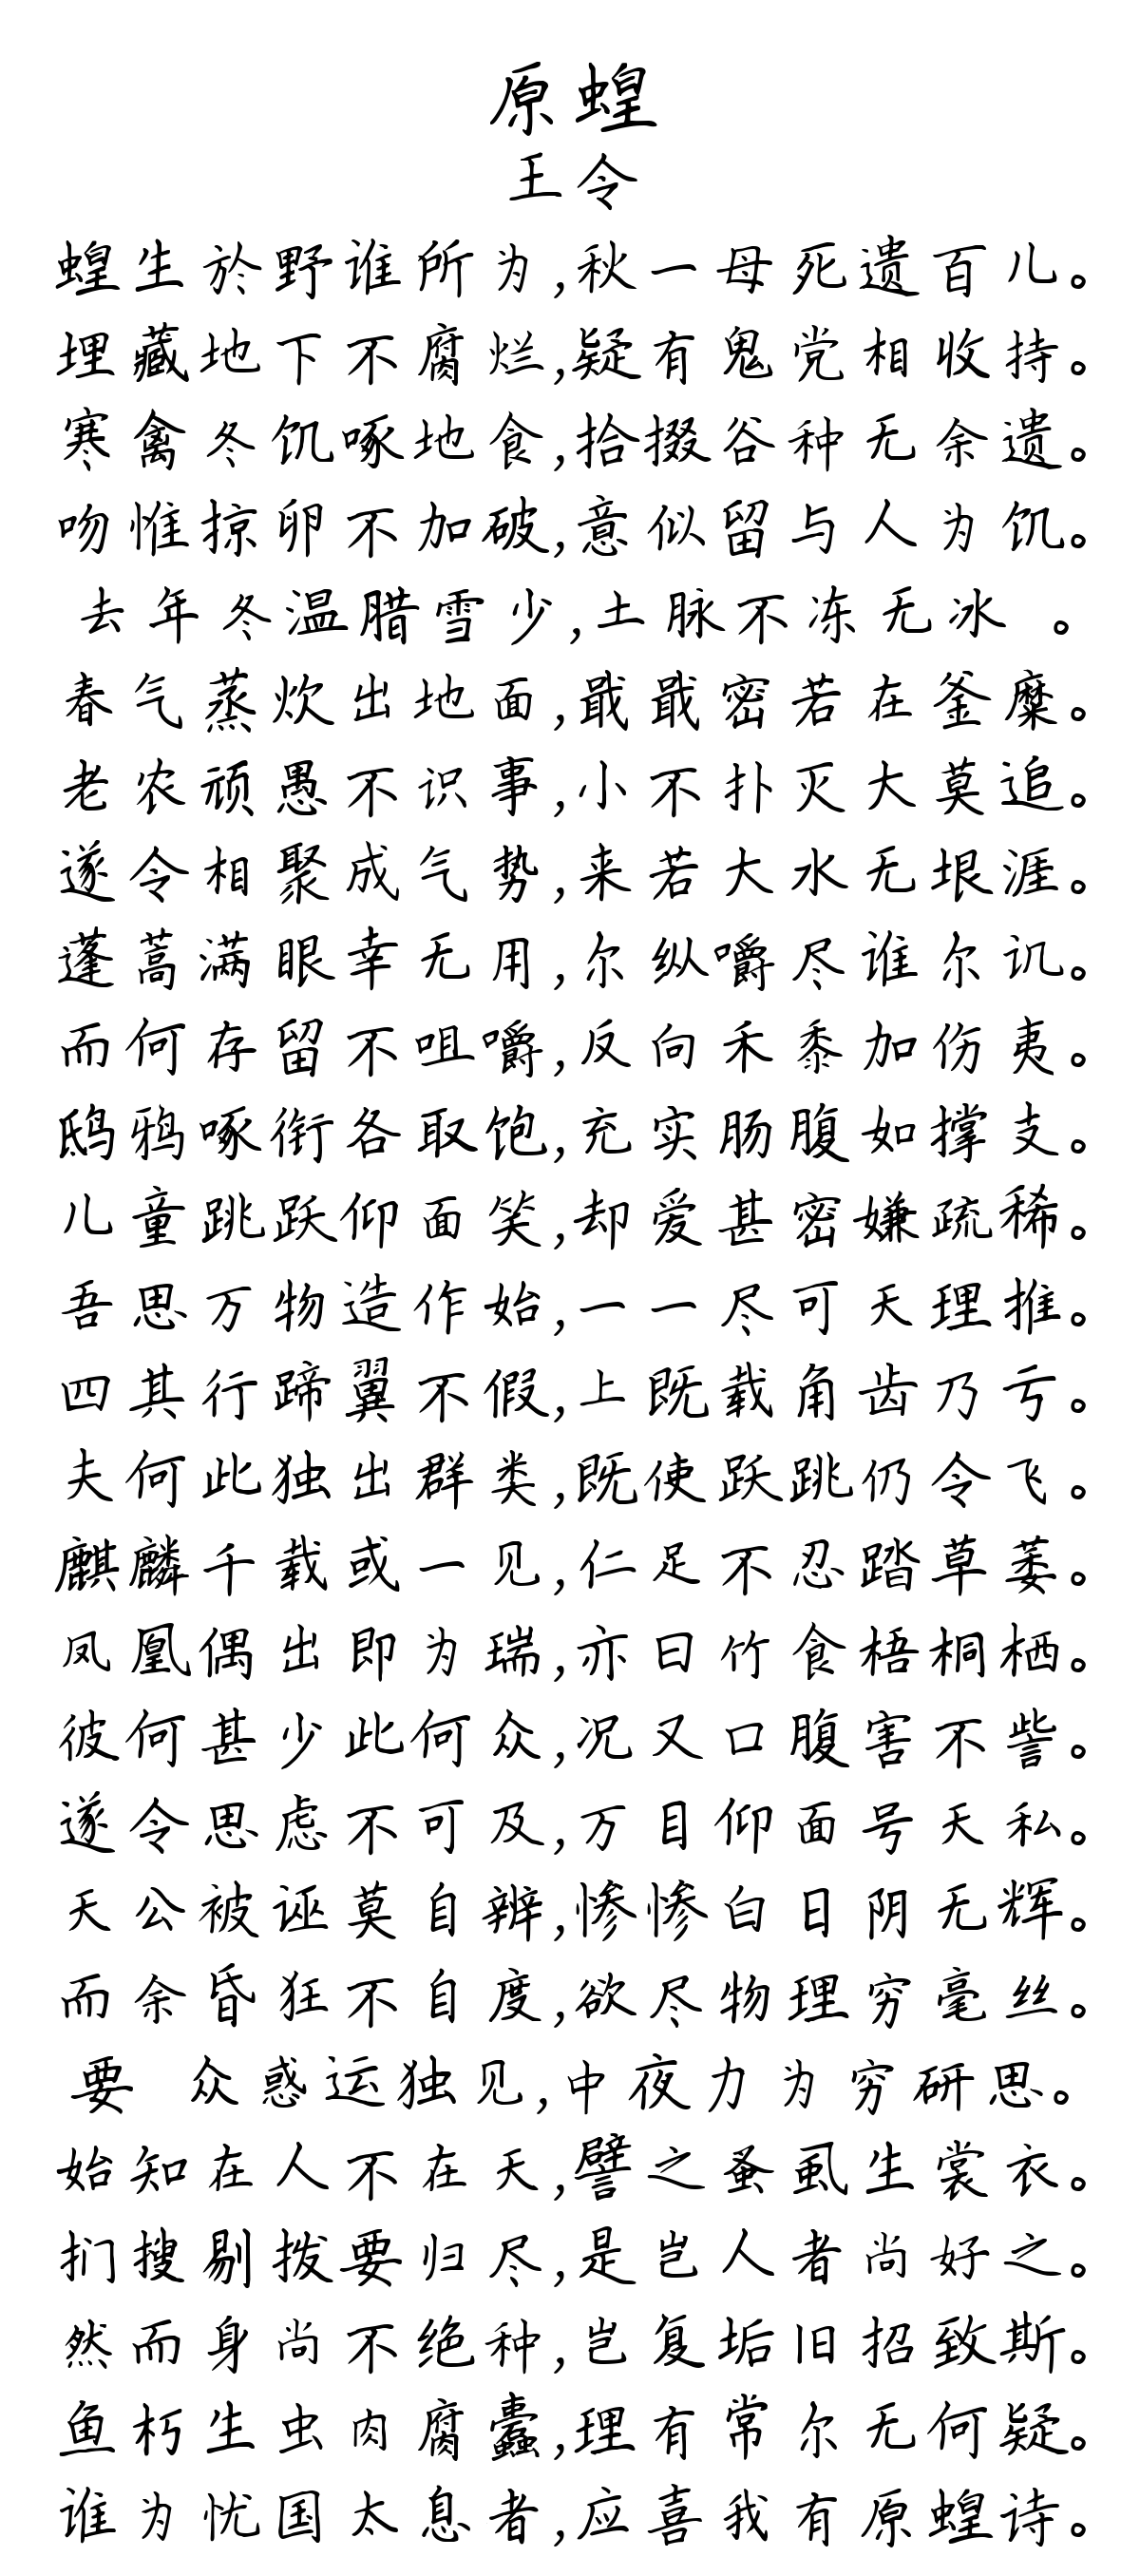 原蝗
王令
蝗生於野谁所为,秋一母死遗百儿。
埋藏地下不腐烂,疑有鬼党相收持。
寒禽冬饥啄地食,拾掇谷种无余遗。
吻惟掠卵不加破,意似留与人为饥。
去年冬温腊雪少,土脉不冻无冰 。
春气蒸炊出地面,戢戢密若在釜糜。
老农顽愚不识事,小不扑灭大莫追。
遂令相聚成气势,来若大水无垠涯。
蓬蒿满眼幸无用,尔纵嚼尽谁尔讥。
而何存留不咀嚼,反向禾黍加伤夷。
鸱鸦啄衔各取饱,充实肠腹如撑支。
儿童跳跃仰面笑,却爱甚密嫌疏稀。
吾思万物造作始,一一尽可天理推。
四其行蹄翼不假,上既载角齿乃亏。
夫何此独出群类,既使跃跳仍令飞。
麒麟千载或一见,仁足不忍踏草萎。
凤凰偶出即为瑞,亦曰竹食梧桐栖。
彼何甚少此何众,况又口腹害不訾。
遂令思虑不可及,万目仰面号天私。
天公被诬莫自辨,惨惨白日阴无辉。
而余昏狂不自度,欲尽物理穷毫丝。
要 众惑运独见,中夜力为穷研思。
始知在人不在天,譬之蚤虱生裳衣。
扪搜剔拨要归尽,是岂人者尚好之。
然而身尚不绝种,岂复垢旧招致斯。
鱼朽生虫肉腐蠹,理有常尔无何疑。
谁为忧国太息者,应喜我有原蝗诗。